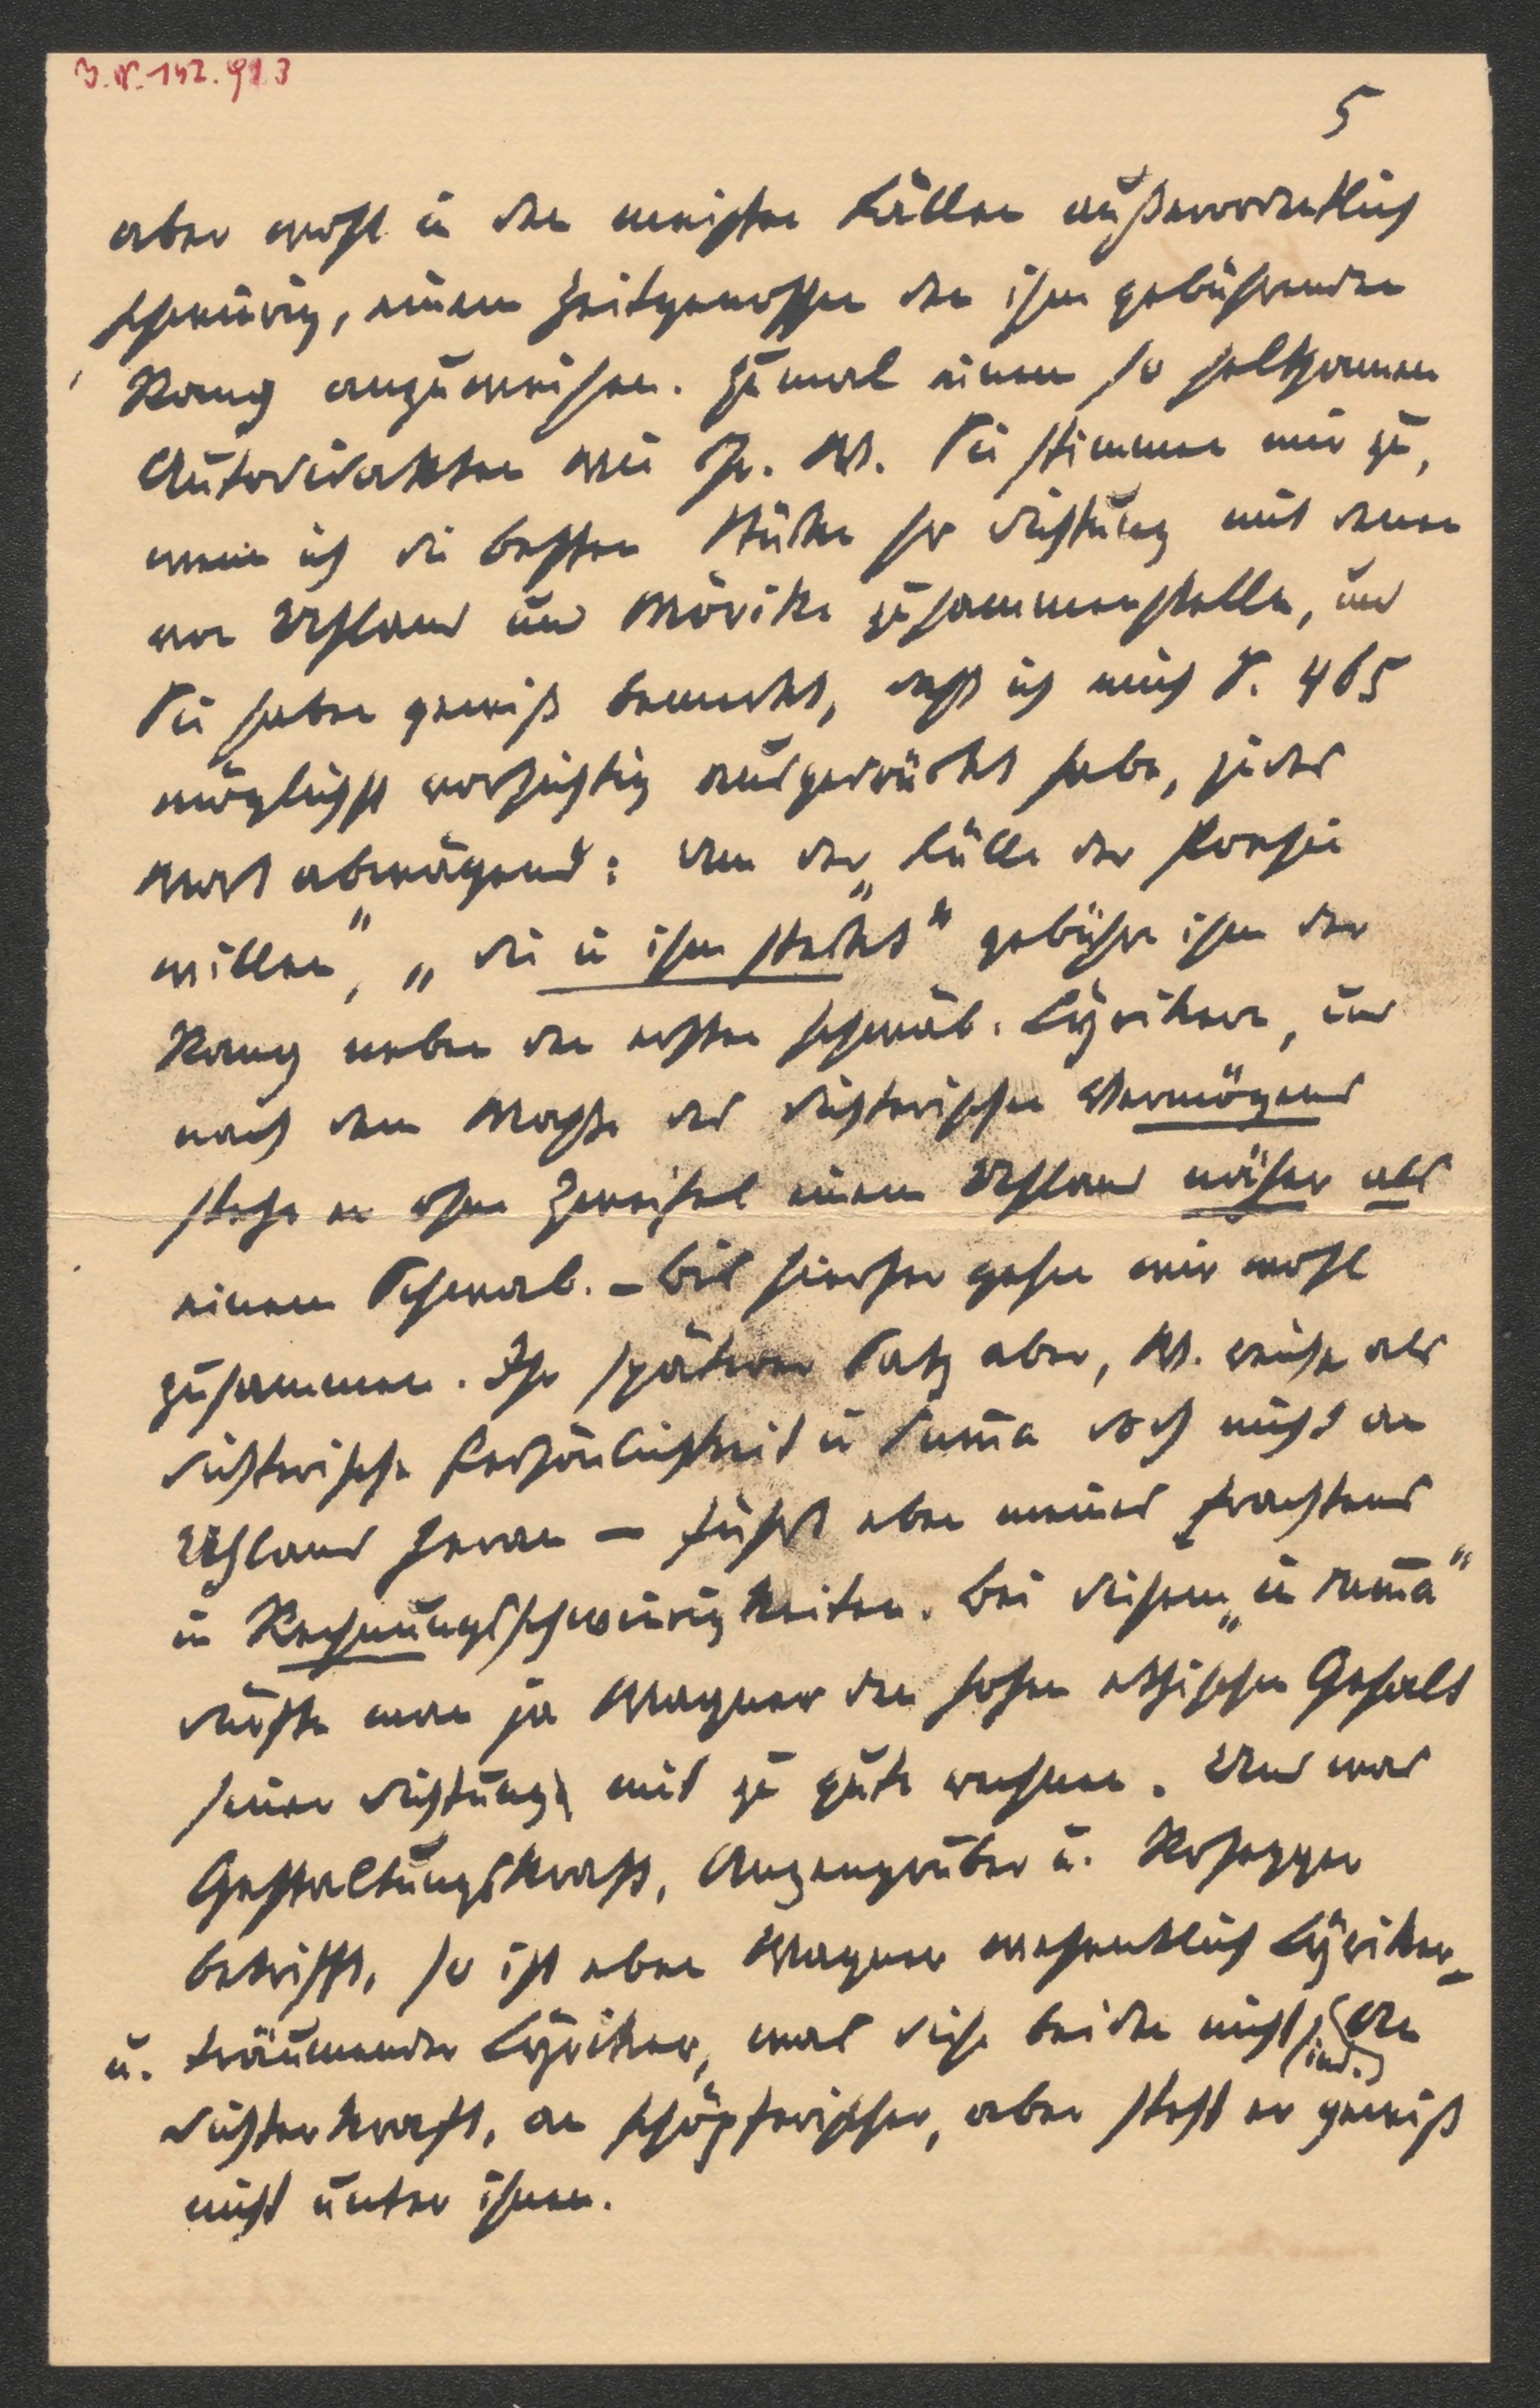 I.N. 142.913
5
aber wohl in den meisten Fällen außerordentlich
schwierig, einem Zeitgenossen den ihm gebührenden
Rang anzuweisen. Zumal einem so seltsamen
Autodidakten wie Chr. W. Sie stimmen mir zu,
wenn ich die besten Stücke sr Dichtung mit denen
von Uhland und Mörike zusammenstelle, und
Sie haben gewiß bemerkt, dass ich mich S. 465
möglichst vorsichtig ausgedrückt habe, jedes
Wort abwägend: Um der „Fülle der Poesie
willen“, „die in ihm steckt“ gebühre ihm der
Rang neben den ersten schwäb. Lyrikern, und
nach dem Maße des dichterischen Vermögens
stehe er ohne Zweifel einem Uhland näher als
einem Schwab. – Bis hierher gehen wir wohl
zusammen. Ihr späterer Satz aber, W. reiche als
dichterische Persönlichkeit in Suma doch nicht an
Uhland heran – führt eben meines Erachtens
in Rechnungsschwierigkeiten. Bei diesem „in suma“
dürfte man ja Wagner den hohen ethischen Gehalt
seiner Dichtung mit zu gute rechnen. Und was
Gestaltungskraft, Anzengruber u. Rosegger
betrifft, so ist eben Wagner wesentlich Lyriker –
u. träumender Lyriker, was diese beiden nicht sind. An
Dichterkraft, an schöpferischer, aber steht er gewiß
nicht unter ihnen.